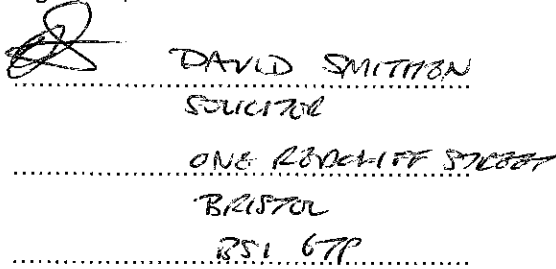 DAVID SMITHEN
SOLICITOR
ONE REDCLIFF STREET
BRISTOL
BS1 6TP